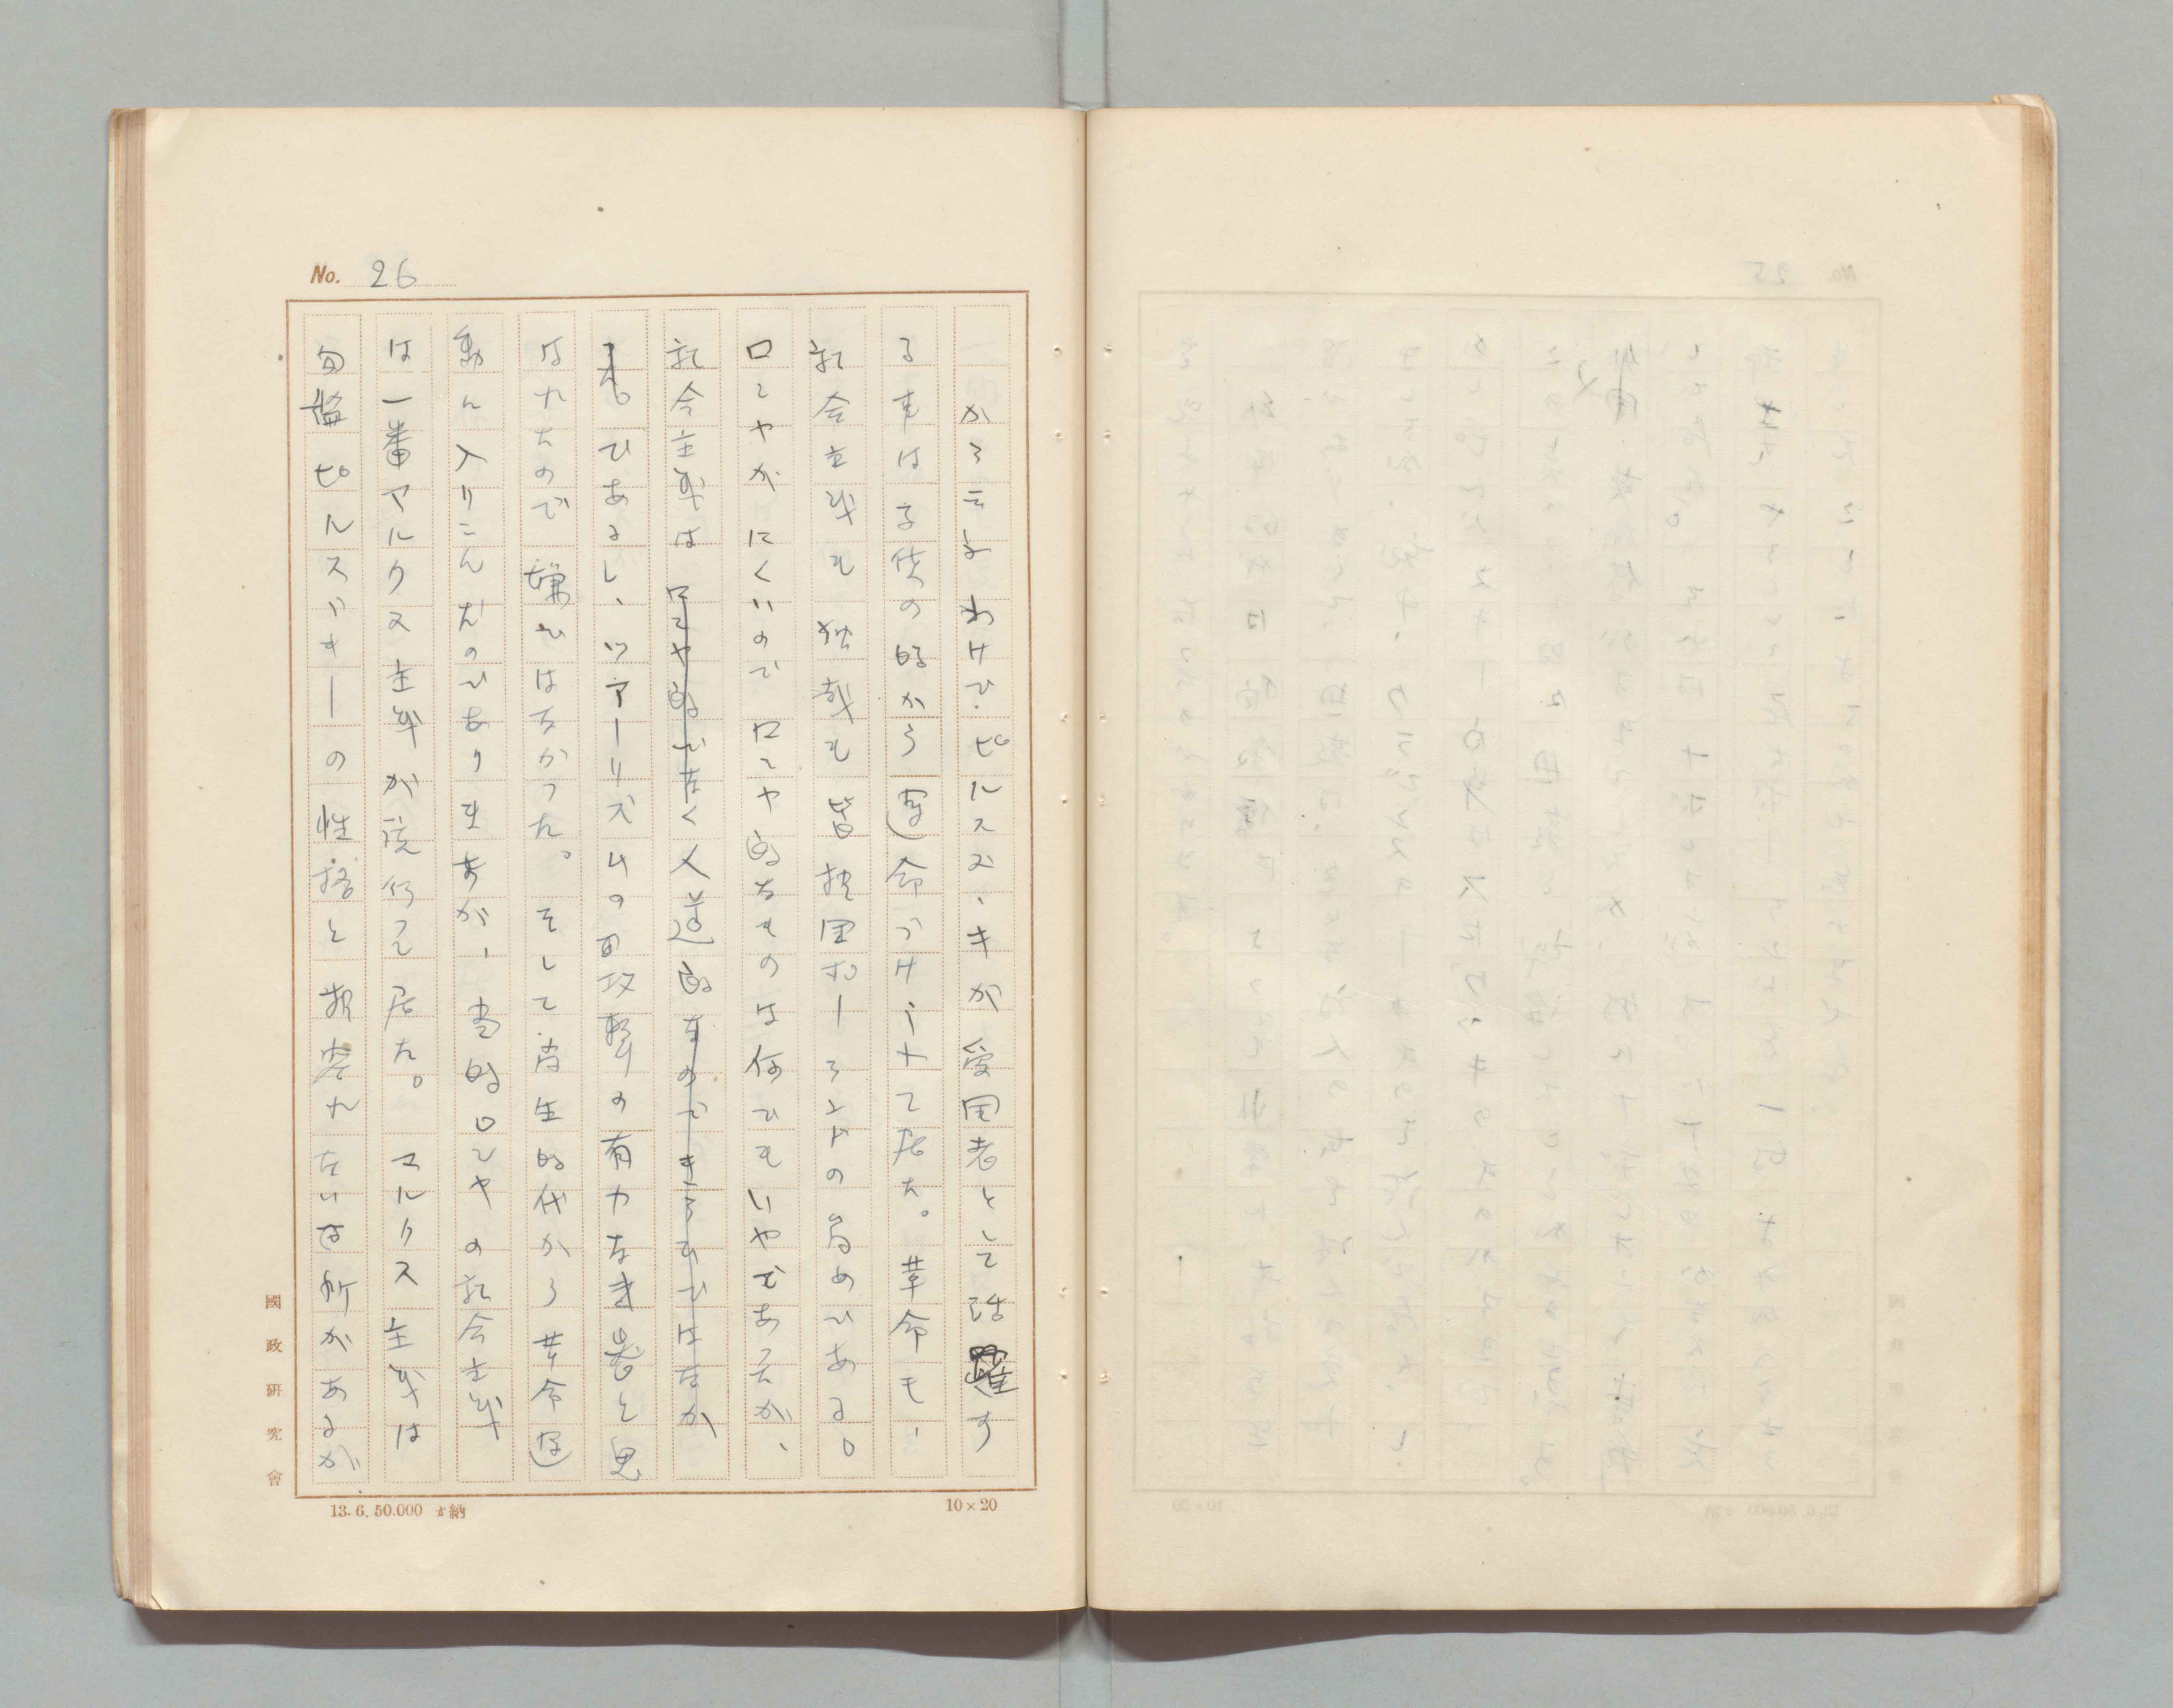 No. 26
かう云ふわけで、ピルスズスキが愛国者として活躍す
る事は子供の時から運命づけられて居た。革命も、
社会主義も独裁も皆祖国ポーランドの為めである。
ロシヤがにくいのでロシヤ的なものは何でもいやであるが、
社会主義はロシヤ的でなく人道的なのできらひではなか
も。であるし、ツアーリズムの攻撃の有力な武器と思
はれたので嫌ひではなかつた。そして学生時代から革命運
動に入りこんだのであります が、当時ロシヤの社会主義
は一番マルクス主義が流行して居た。マルクス主義は
勿論ピルスヅスキーの性格と相容れない所があるが
國政研究會
13. 6. 50.000 納
10×20